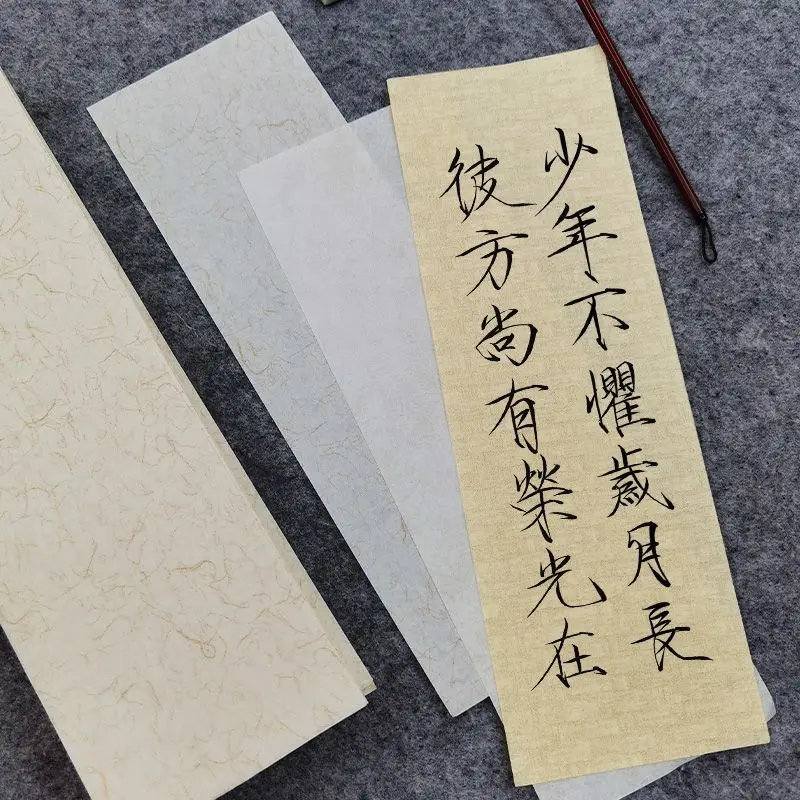 少年不懼歲月長
彼方尚有榮光在